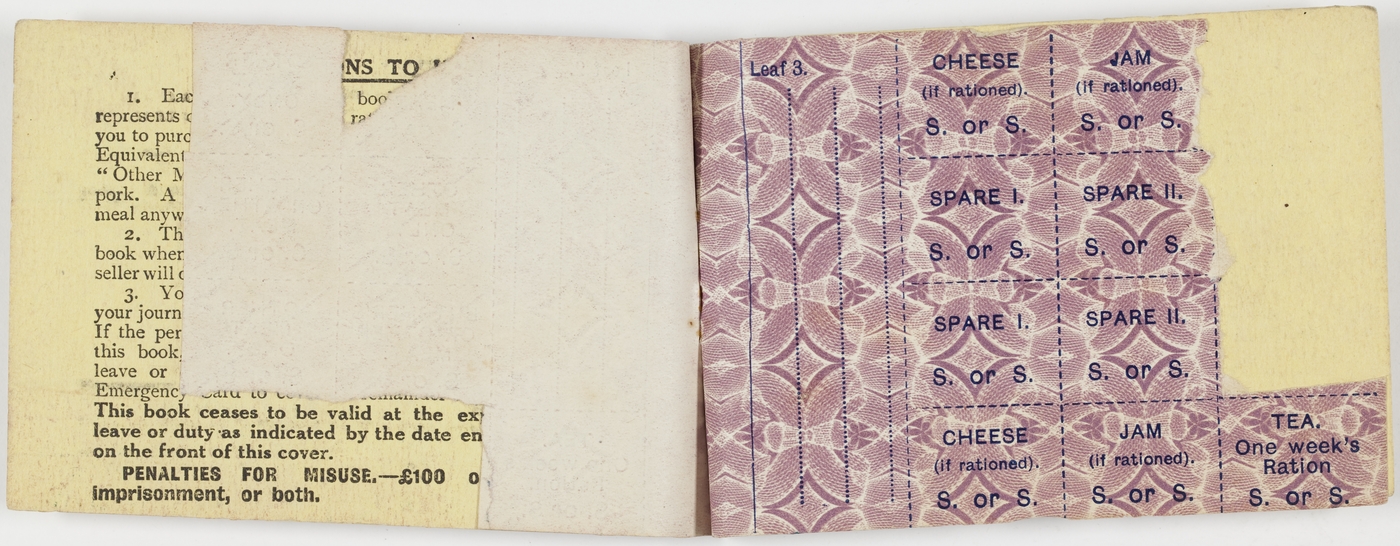 NS TO
1. Eac book
represents
you to purc
Equivalent
"Other M
pork. A
meal anyw
2. Th
book when
seller will
3. Yo
your journ
If the per
this book,
leave or
Emergency Card to
This book ceases to be valid at the ex
leave or duty as indicated by the date en
on the front of this cover.
PENALTIES FOR MISUSE.—£100 o
imprisonment, or both.
Leaf 3.
CHEESE
(if rationed).
S. or S.
JAM
(if rationed).
S. or S.
SPARE I.
S. or S.
SPARE II.
S. or S.
SPARE I.
S. or S.
SPARE II.
S. or S.
CHEESE
(if rationed).
S. or S.
JAM
(if rationed).
S. or S.
TEA.
One week's
Ration
S. or S.